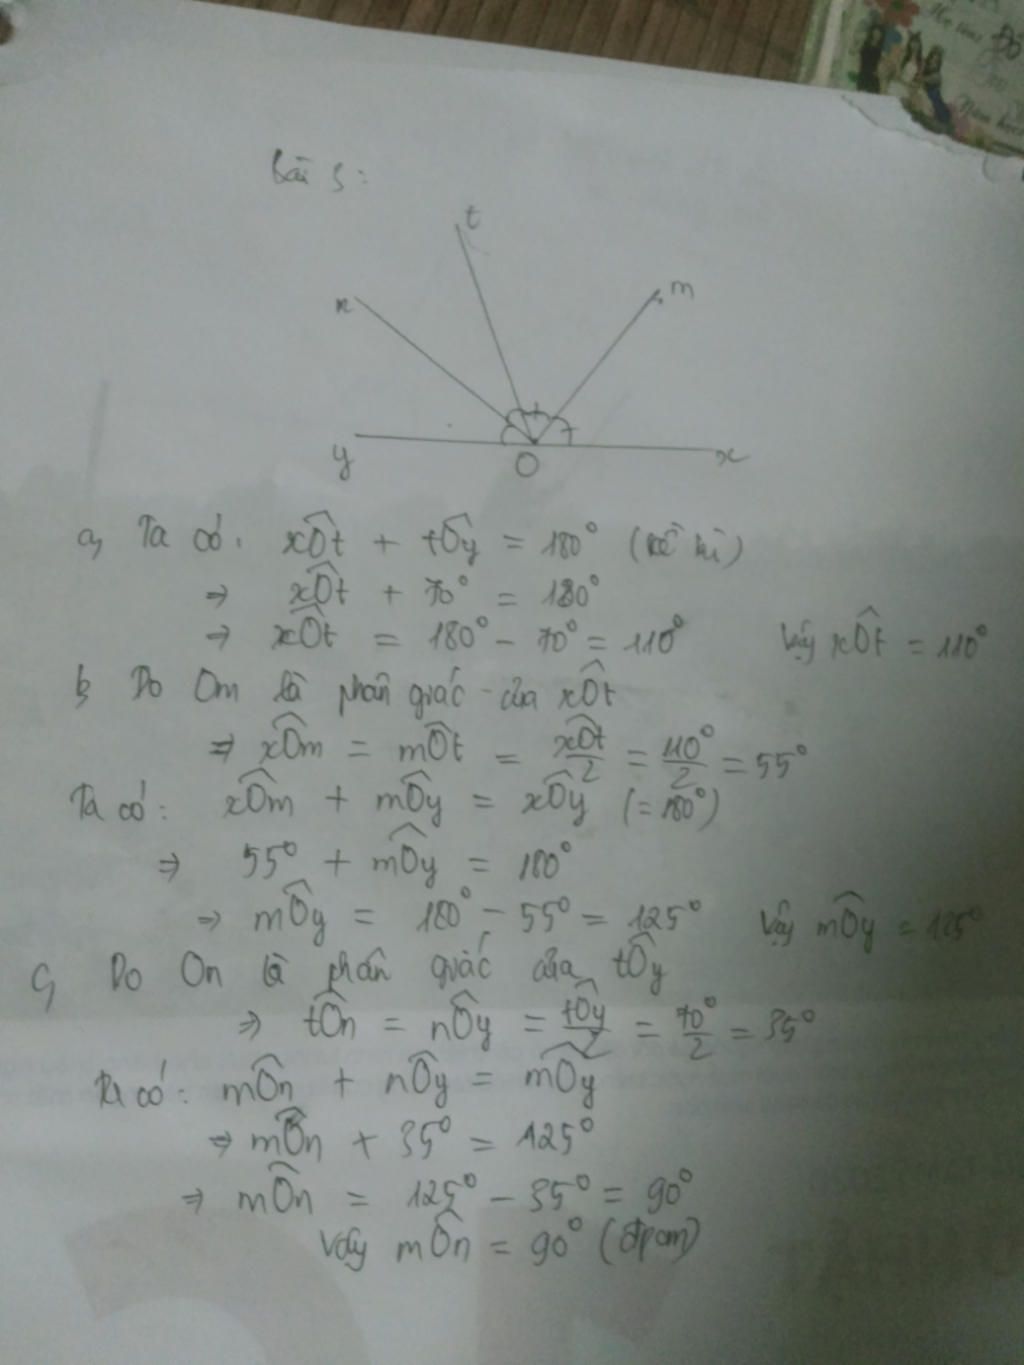 Bài 3:
t
n
m
y
O
x
a, Ta có: xÔt + tÔy = 180° (kề bù)
⇒ xÔt + 70° = 180°
⇒ xÔt = 180° - 70° = 110° Vậy xÔt = 110°
b, Do Om là phân giác của xÔt
⇒ xÔm = mÔt = xÔt/2 = 110°/2 = 55°
Ta có: xÔm + mÔy = xÔy (= 180°)
⇒ 55° + mÔy = 180°
⇒ mÔy = 180° - 55° = 125° Vậy mÔy = 125°
c, Do On là phân giác của tÔy
⇒ tÔn = nÔy = tÔy/2 = 70°/2 = 35°
Ta có: mÔn + nÔy = mÔy
⇒ mÔn + 35° = 125°
⇒ mÔn = 125° - 35° = 90°
Vậy mÔn = 90° (đpcm)